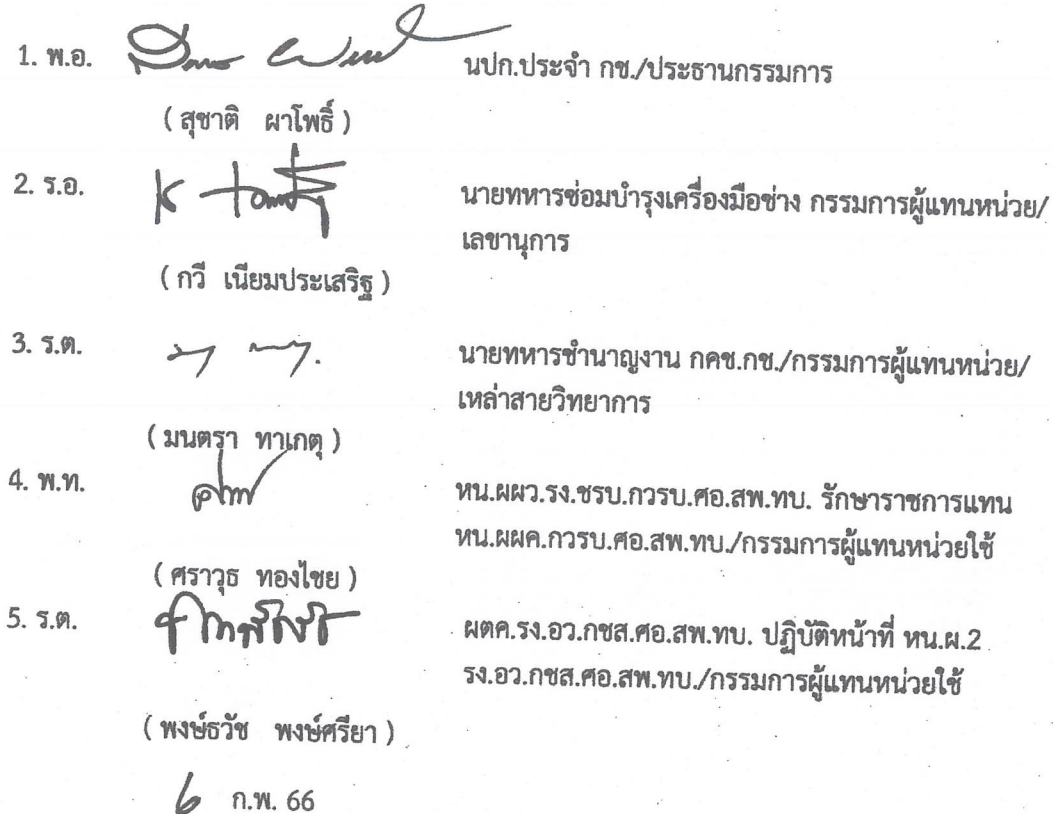 1. พ.อ. นปก.ประจำ กช./ประธานกรรมการ
( สุชาติ ผาโพธิ์ )
2. ร.อ. นายทหารซ่อมบำรุงเครื่องมือช่าง กรรมการผู้แทนหน่วย/
เลขานุการ
( กวี เนียมประเสริฐ )
3. ร.ต. นายทหารชำนาญงาน กคช.กช./กรรมการผู้แทนหน่วย/
เหล่าสายวิทยาการ
( มนตรา ทาเกตุ )
4. พ.ท. หน.ผผว.รง.ชรบ.กวรบ.ศอ.สพ.ทบ. รักษาราชการแทน
หน.ผผค.กวรบ.ศอ.สพ.ทบ./กรรมการผู้แทนหน่วยใช้
( ศราวุธ ทองไชย )
5. ร.ต. ผตค.รง.อว.กชส.ศอ.สพ.ทบ. ปฏิบัติหน้าที่ หน.ผ.2
รง.อว.กชส.ศอ.สพ.ทบ./กรรมการผู้แทนหน่วยใช้
( พงษ์ธวัช พงษ์ศรียา )
6 ก.พ. 66